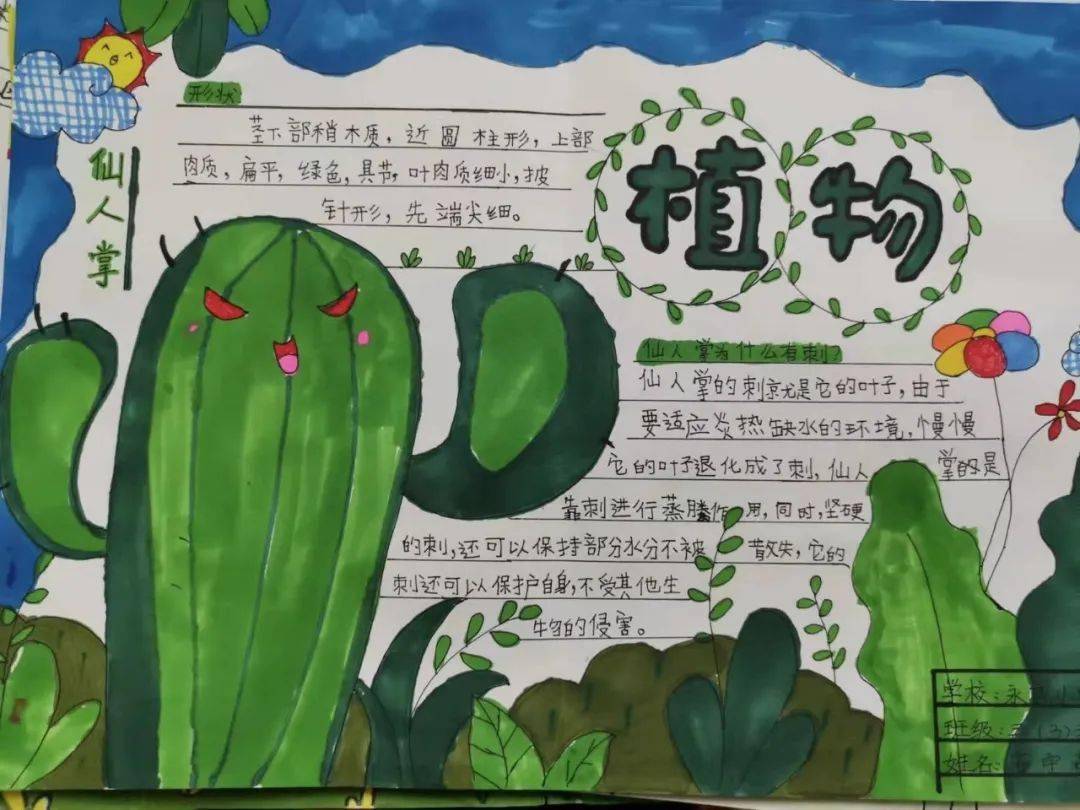 仙人掌
形状
茎下部稍木质，近圆柱形，上部
肉质，扁平，绿色，具节，叶肉质细小，披
针形，先端尖细。
植物
仙人掌为什么有刺？
仙人掌的刺就是它的叶子，由于
要适应炎热缺水的环境，慢慢
它的叶子退化成了刺，仙人掌的是
靠刺进行蒸腾作用，同时，坚硬
的刺，还可以保持部分水分不被散失，它的
刺还可以保护自身，不受其他生
物的侵害。
学校：永
班级：三（3）
姓名：